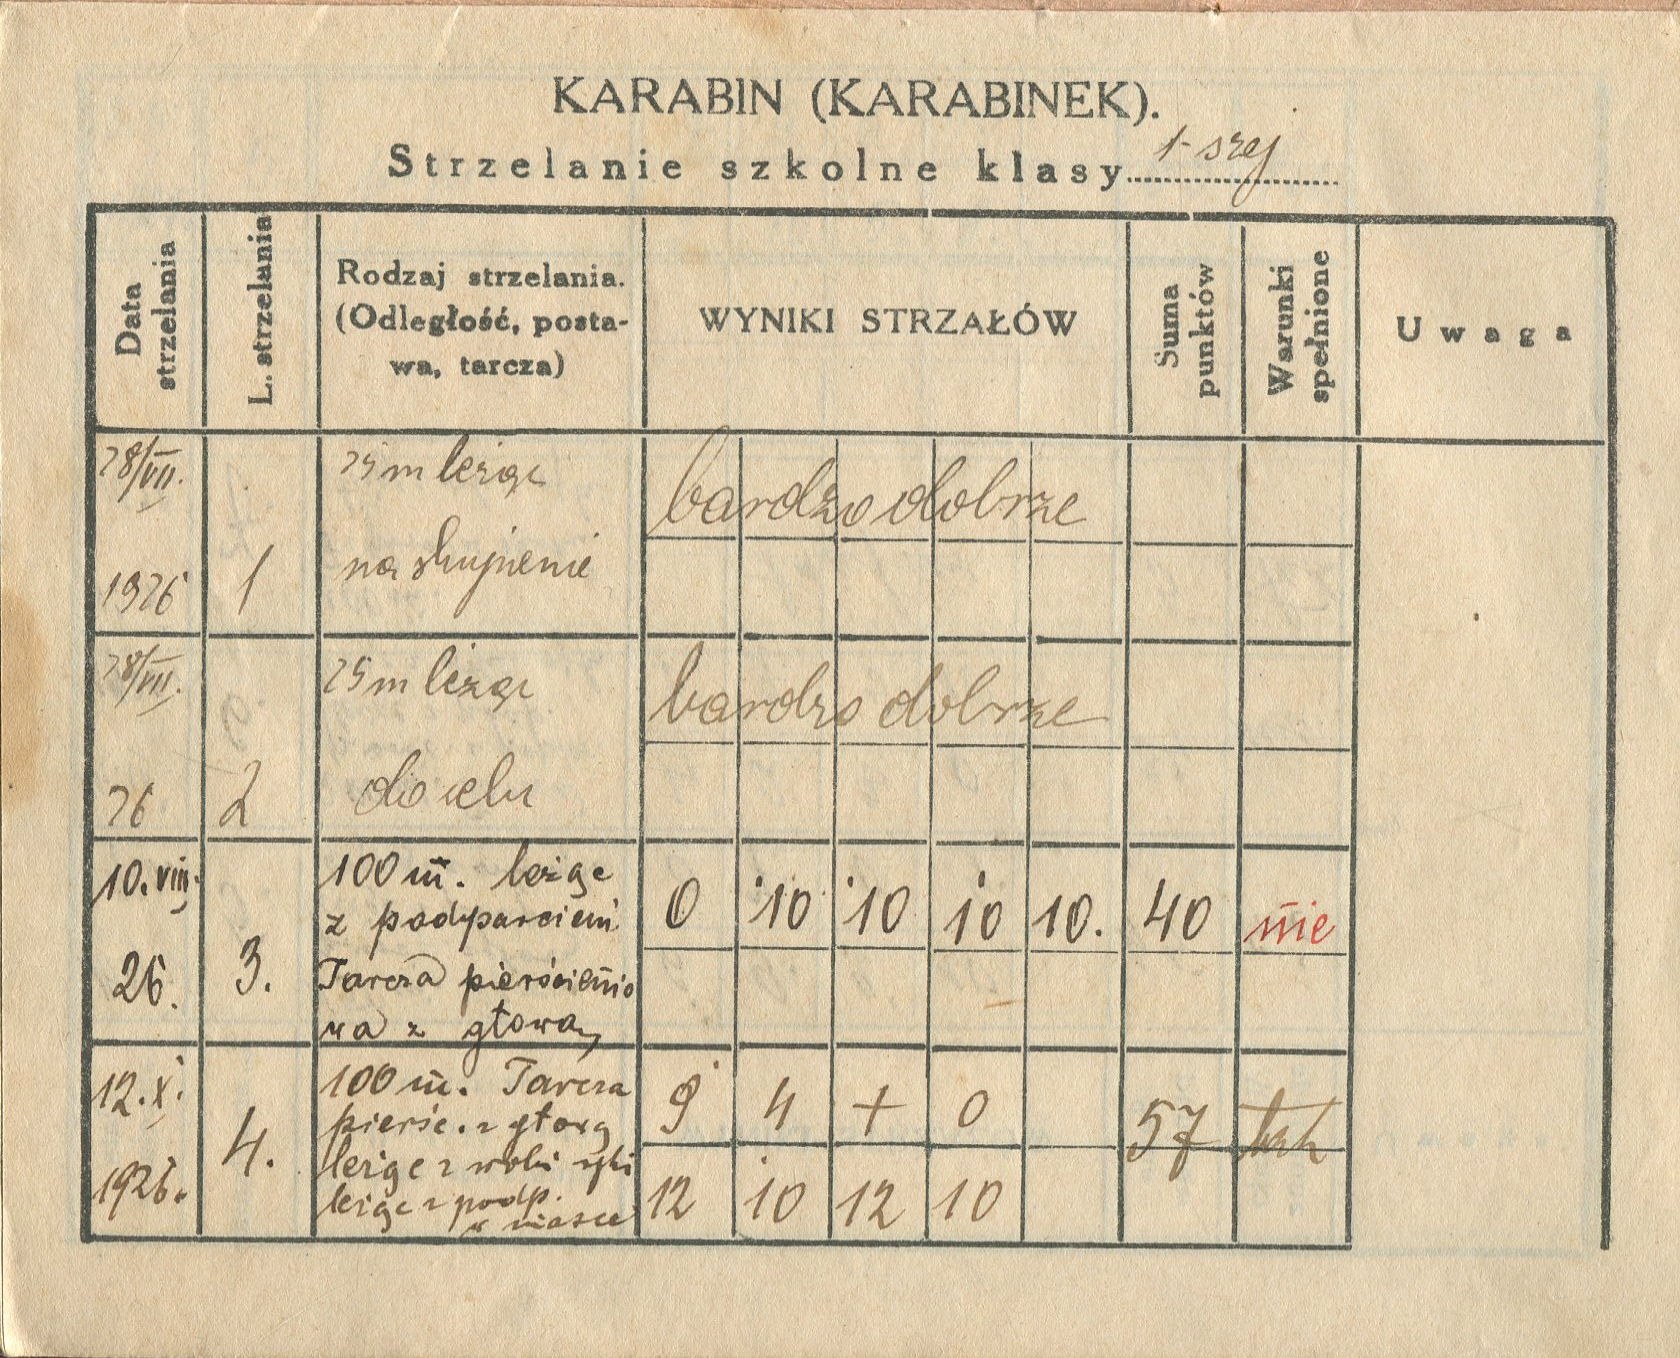 KARABIN (KARABINEK).
Strzelanie szkolne klasy 1-szej
Data strzelania
L. strzelania
Rodzaj strzelania.
(Odległość, posta-
wa, tarcza)
WYNIKI STRZAŁÓW
Suma punktów
Warunki spełnione
Uwaga
28/VII.
1926
1
25 m leżąc
na skupienie
bardzo dobrze
28/VII.
26
2
25 m leżąc
do celu
bardzo dobrze
10. VIII.
26.
3.
100 m. leżąc
z podparciem
Tarcza pierścienio
wa z głową
0 10 10 10 10. 40 nie
12. X.
1926.
4.
100 m. Tarcza
pierśc. z głową
leżąc z wolnej ręki
leżąc z podp.
w masce
9 4 + 0
12 10 12 10
57 tak